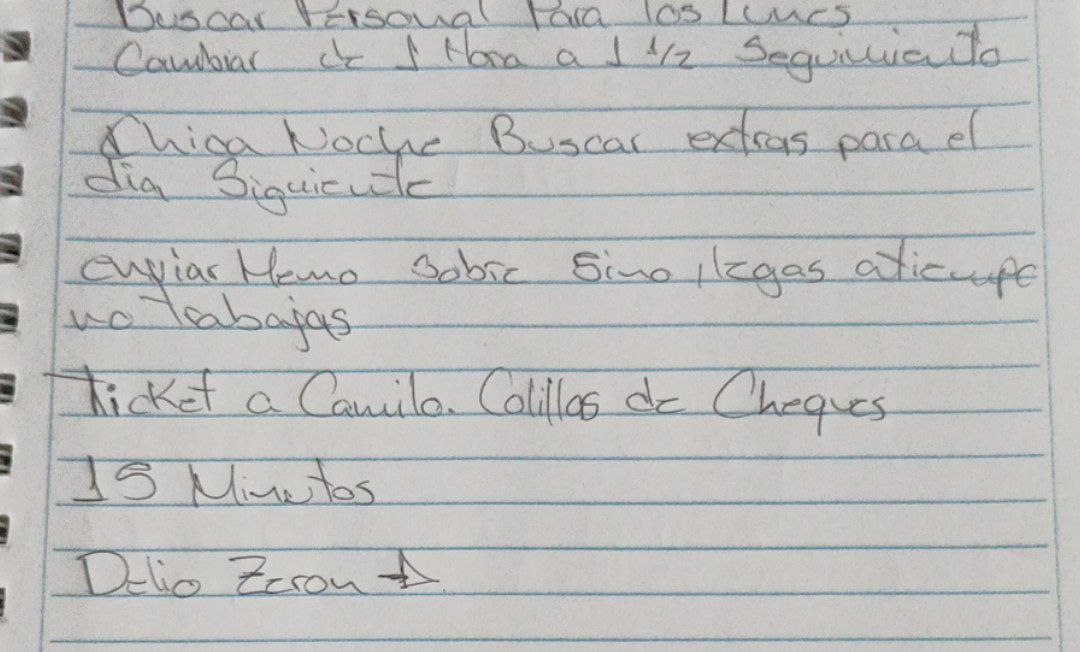 Buscar Personal Para los Lunes
Cambiar de 1 Hora a 1 1/2 Seguimiento
Chica Noche Buscar extras para el
dia Siguiente
enviar Memo sobre Sino llegas atiempo
no trabajas
Ticket a Camilo. Colillas de Cheques
15 Minutos
Delio Zeron →